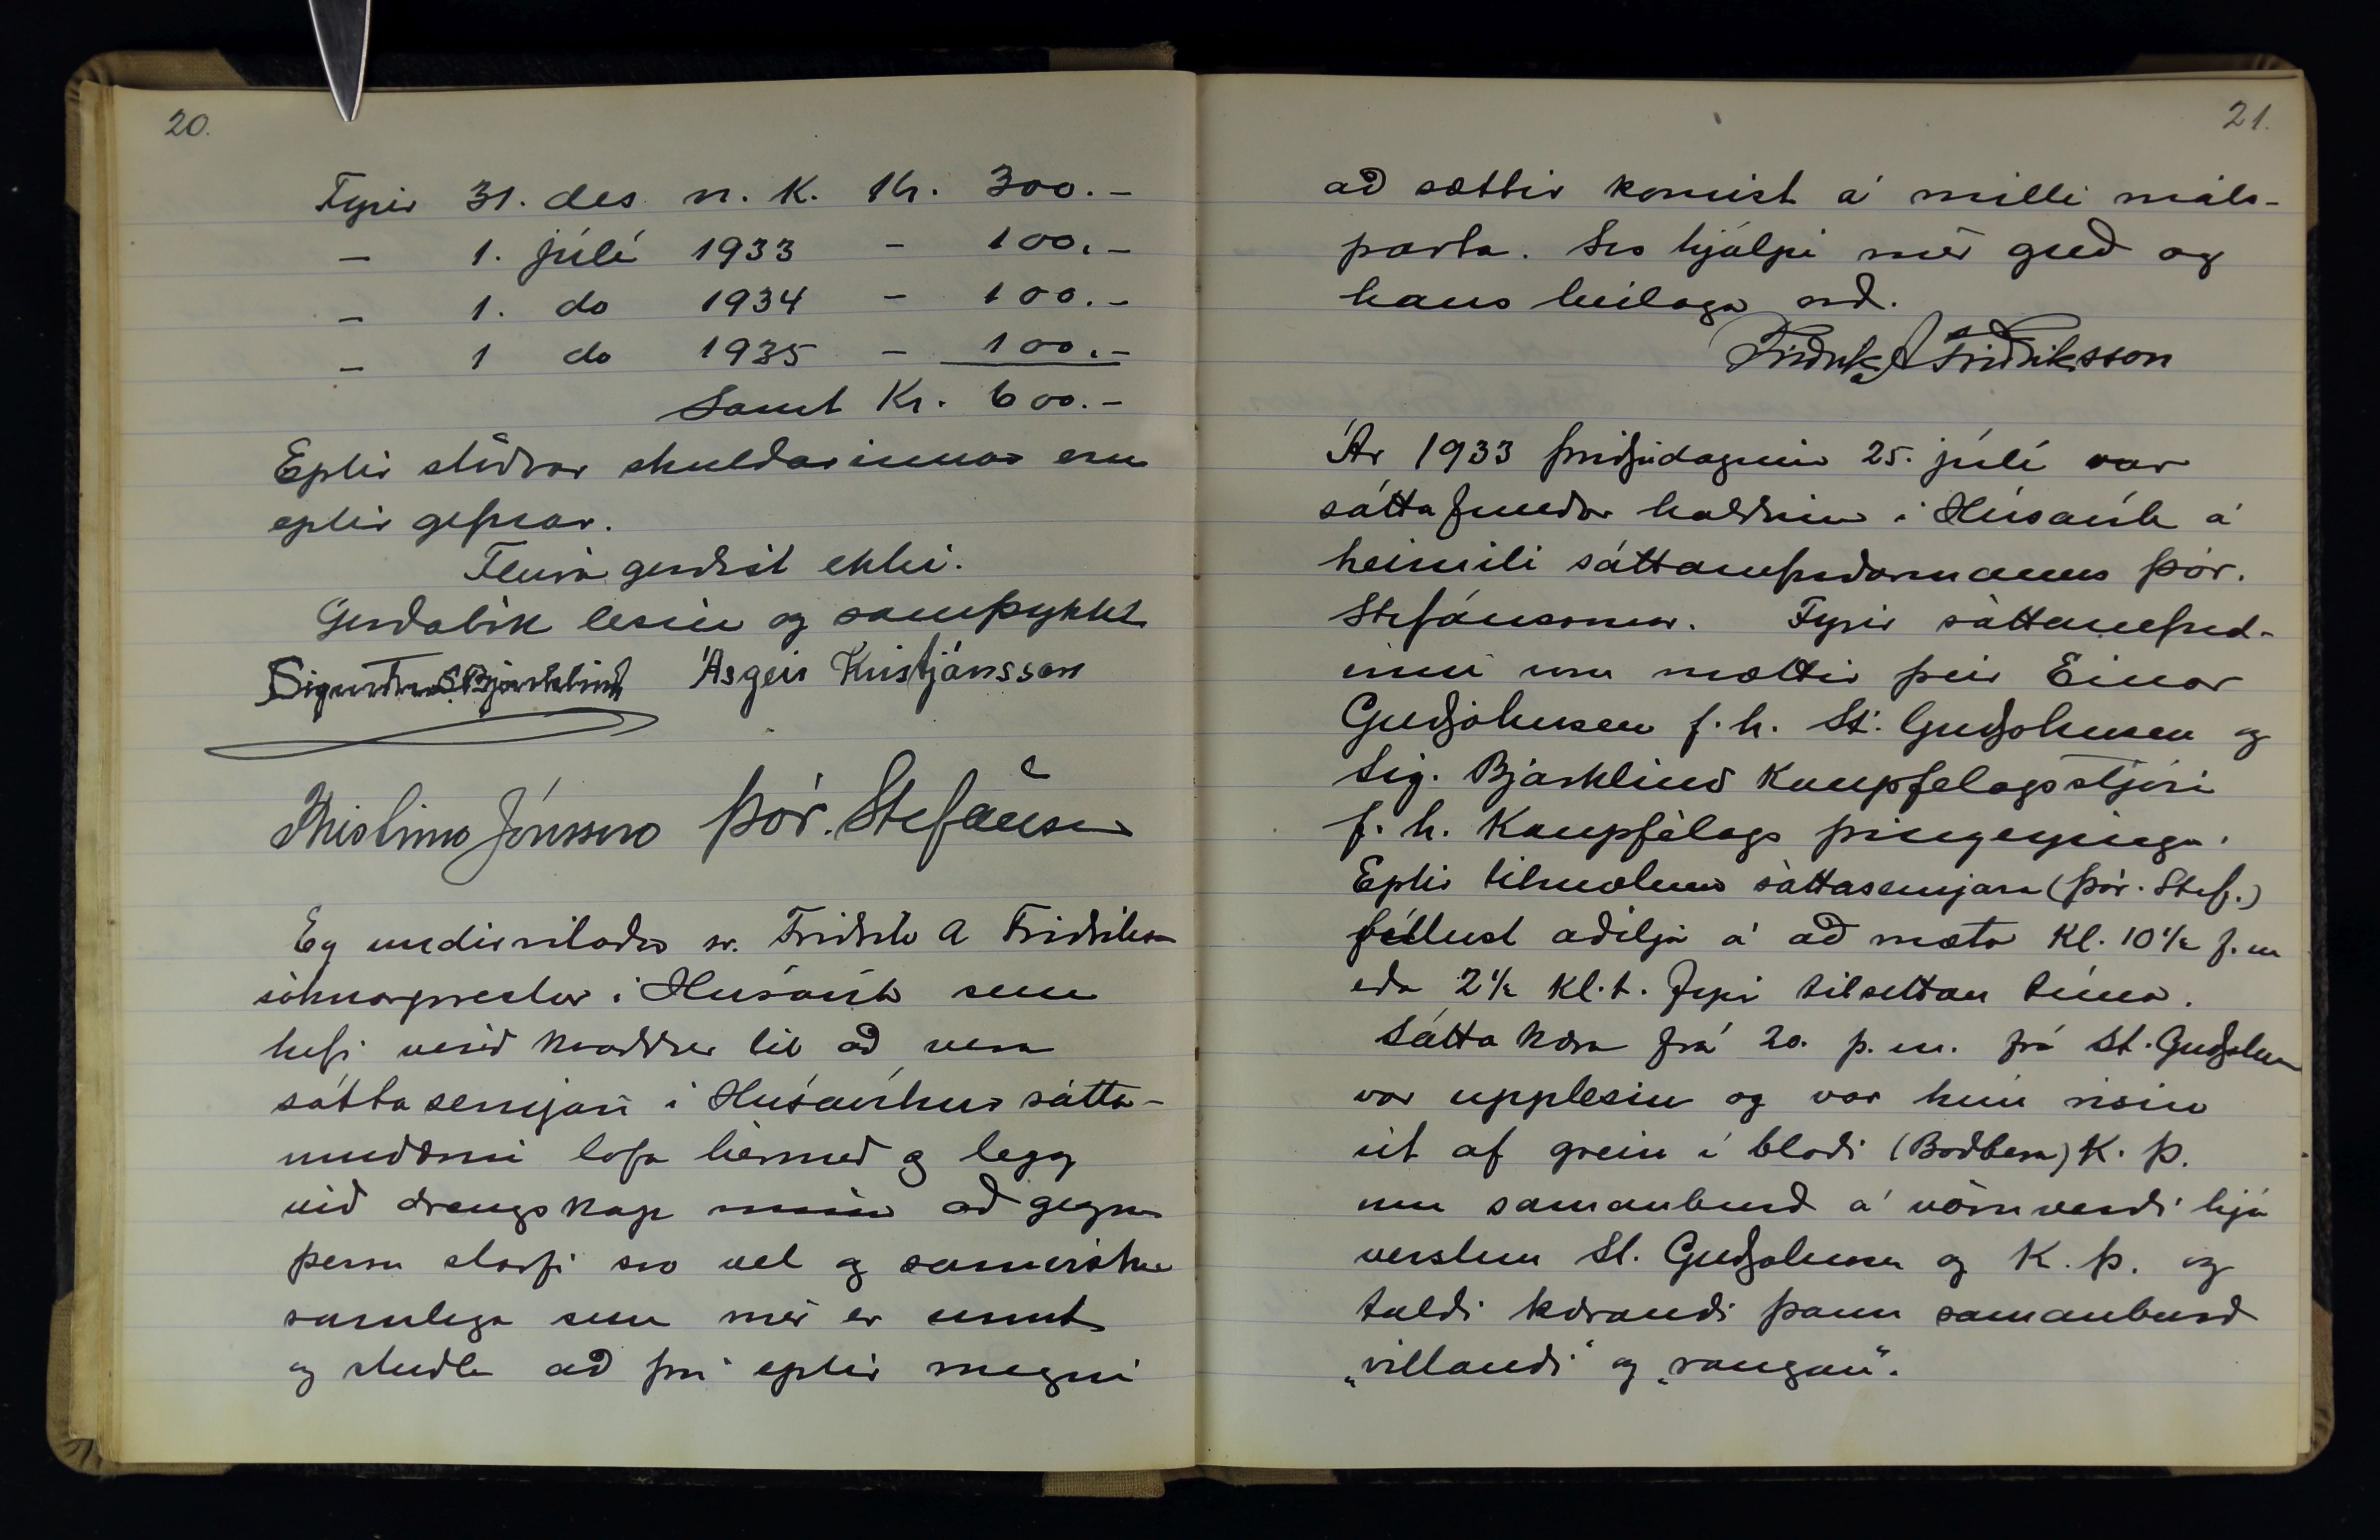 20.
Fyrir 31. des. n. k. Kr. 300.-
– 1. júlí 1933 – 100.-
– 1. do 1934 – 100.-
– 1 do 1935 – 100.-
Samt Kr. 600.-
Eptir stöðvar skuldarinnar eru
eptir gefnar.
Fleira gerðist ekki.
Gerðabók lesin og samþykkt
Sigurður S Bjarklind Ásgeir Kristjánsson
Kristinn Jónsson Þór. Stefánsson
Eg undirritaður sr. Friðrik A Friðriksson
sóknarprestur í Húsavík sem
hefi verið kvaddur til að vera
sáttasemjari í Húsavíkur sátta-
umdæmi lofa hérmeð og legg
við drengskap minn að gegna
þessu starfi svo vel og samvisku
samlega sem mér er unnt
og stuðla að því eptir megni
21.
að sættir komist á milli máls-
parta. Svo hjálpi mér guð og
hans heilaga orð.
Friðrik A Friðriksson
Ár 1933 þriðjudaginn 25. júlí var
sáttafundur haldinn í Húsavík á
heimili sáttanefndarmanns Þór.
Stefánssonar. Fyrir sáttanefnd-
inni mættir þeir Einar
Guðjohnsen f. h. St. Guðjohnsen og
Sig. Bjarklind Kaupfelagsstjóri
f. h. Kaupfélags Þingeyinga.
Eptir tilmælum sáttasemjara (Þór. Stef.)
féllust aðilja á að mæta Kl. 10½ f.m
eða 2½ kl.t. fyrir tilsettan tíma.
Sáttakæra frá 20. þ. m. frá St. Guðjohnsen
var upplesin og var hún risin
út af grein í blaði (Boðbera) K. Þ.
um samanburð á vöruverði hjá
verslun St. Guðjohnsen og K. Þ. og
taldi kærandi þann samanburð
„villandi“ og „rangan“.